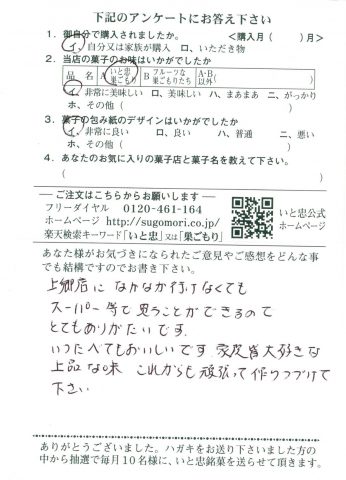 下記のアンケートにお答え下さい
1. 御自分で購入されましたか。 <購入月( )月>
イ. 自分又は家族が購入 ロ. いただき物
2. 当店の菓子のお味はいかがでしたか
品 名 A いと忠巣ごもり B フルーツな巣ごもりたち A・B以外( )
イ. 非常に美味しい ロ、美味しい ハ、まあまあ ニ、がっかり
ホ、その他( )
3. 菓子の包み紙のデザインはいかがでしたか
イ. 非常に良い ロ、良い ハ、普通 ニ、悪い
ホ、その他( )
4. あなたのお気に入りの菓子店と菓子名を教えて下さい。
( )
ご注文はこちらからお願いします
フリーダイヤル 0120-461-164
ホームページ http://sugomori.co.jp/
楽天検索キーワード「いと忠」又は「巣ごもり」
いと忠公式
ホームページ
あなた様がお気づきになられたご意見やご感想をどんな事
でも結構ですのでお書き下さい。
上郷店に なかなか行けなくても
スーパー等で買うことができるので
とてもありがたいです.
いつたべてもおいしいです 家皮皆大好きな
上品な味 これからも頑張って作りつづけて
下さい
ありがとうございました。ハガキをお送り下さいました方の
中から抽選で毎月10名様に、いと忠銘菓を送らせて頂きます。